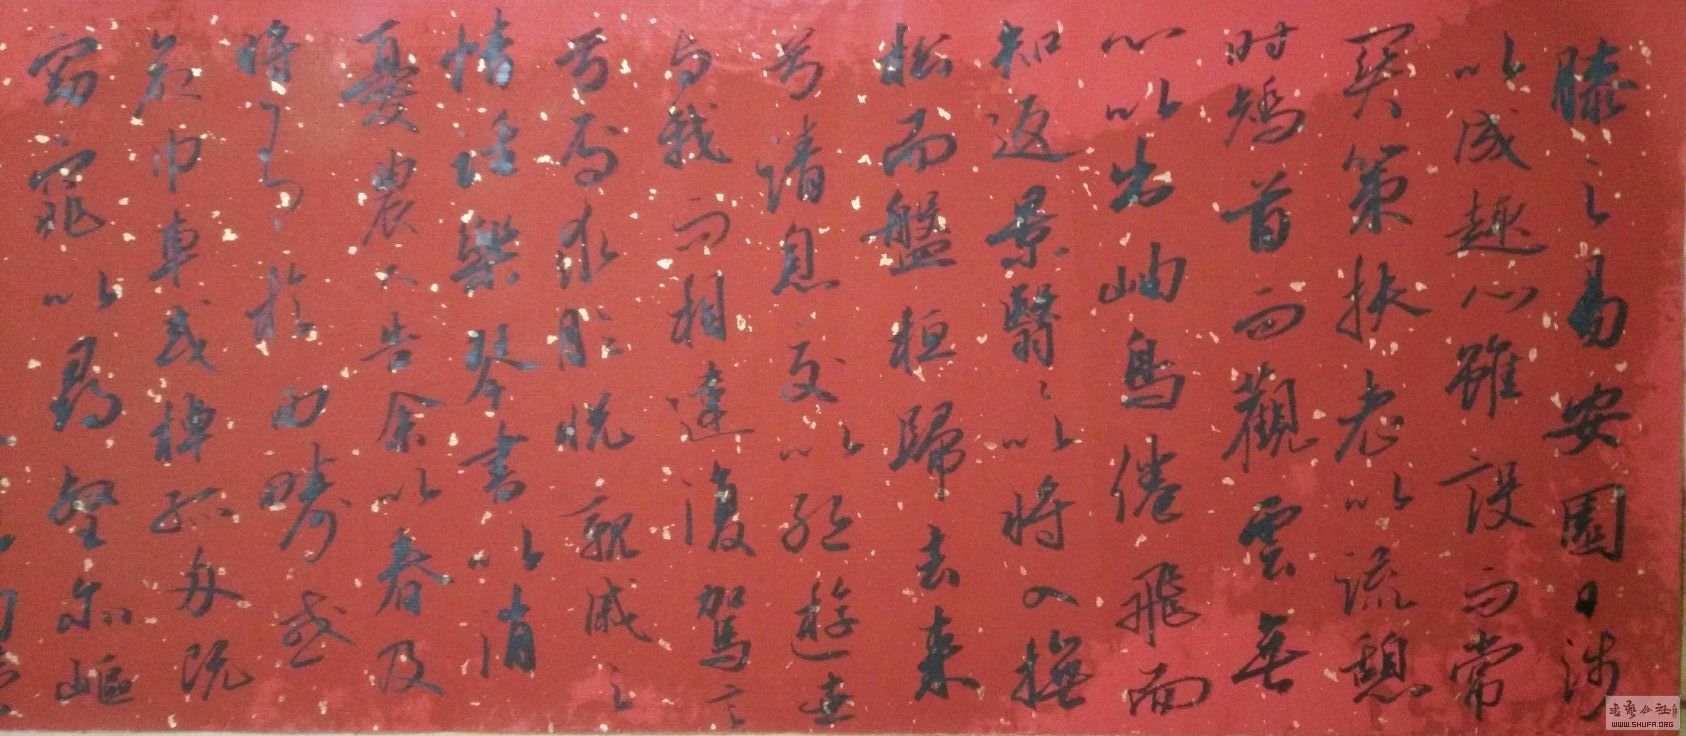 膝之易安園日涉
以成趣門雖設而常
關策扶老以流憩
時矯首而觀雲無
心以出岫鳥倦飛而
知返景翳翳以將入撫
松而盤桓歸去來
兮請息交以絕游世
與我而相違復駕言
兮焉求悅親戚之
情話樂琴書以消
憂農人告余以春及
將有事於西疇或
命巾車或棹孤舟既
窈窕以尋壑亦嶇
WWW.SHUFA.ORG